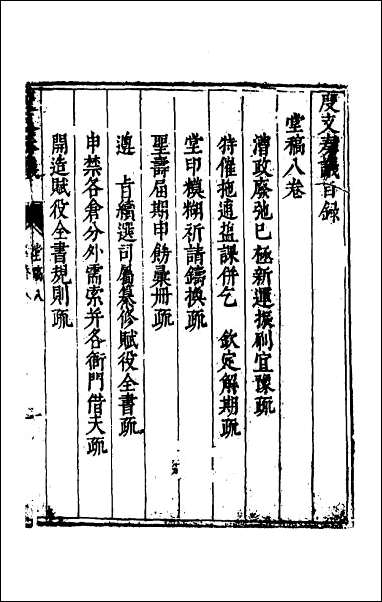 度支奏議目錄
堂稿八卷
漕政廢弛已極新運振刷宜豫疏
特催拖逋鹽課併乞　欽定解期疏
堂印模糊祈請鑄換疏
聖壽屆期申飭彙冊疏
遵　旨續選司屬纂修賦役全書疏
申禁各倉分外需索并各衙門借夫疏
開造賦役全書規則疏
堂稿八